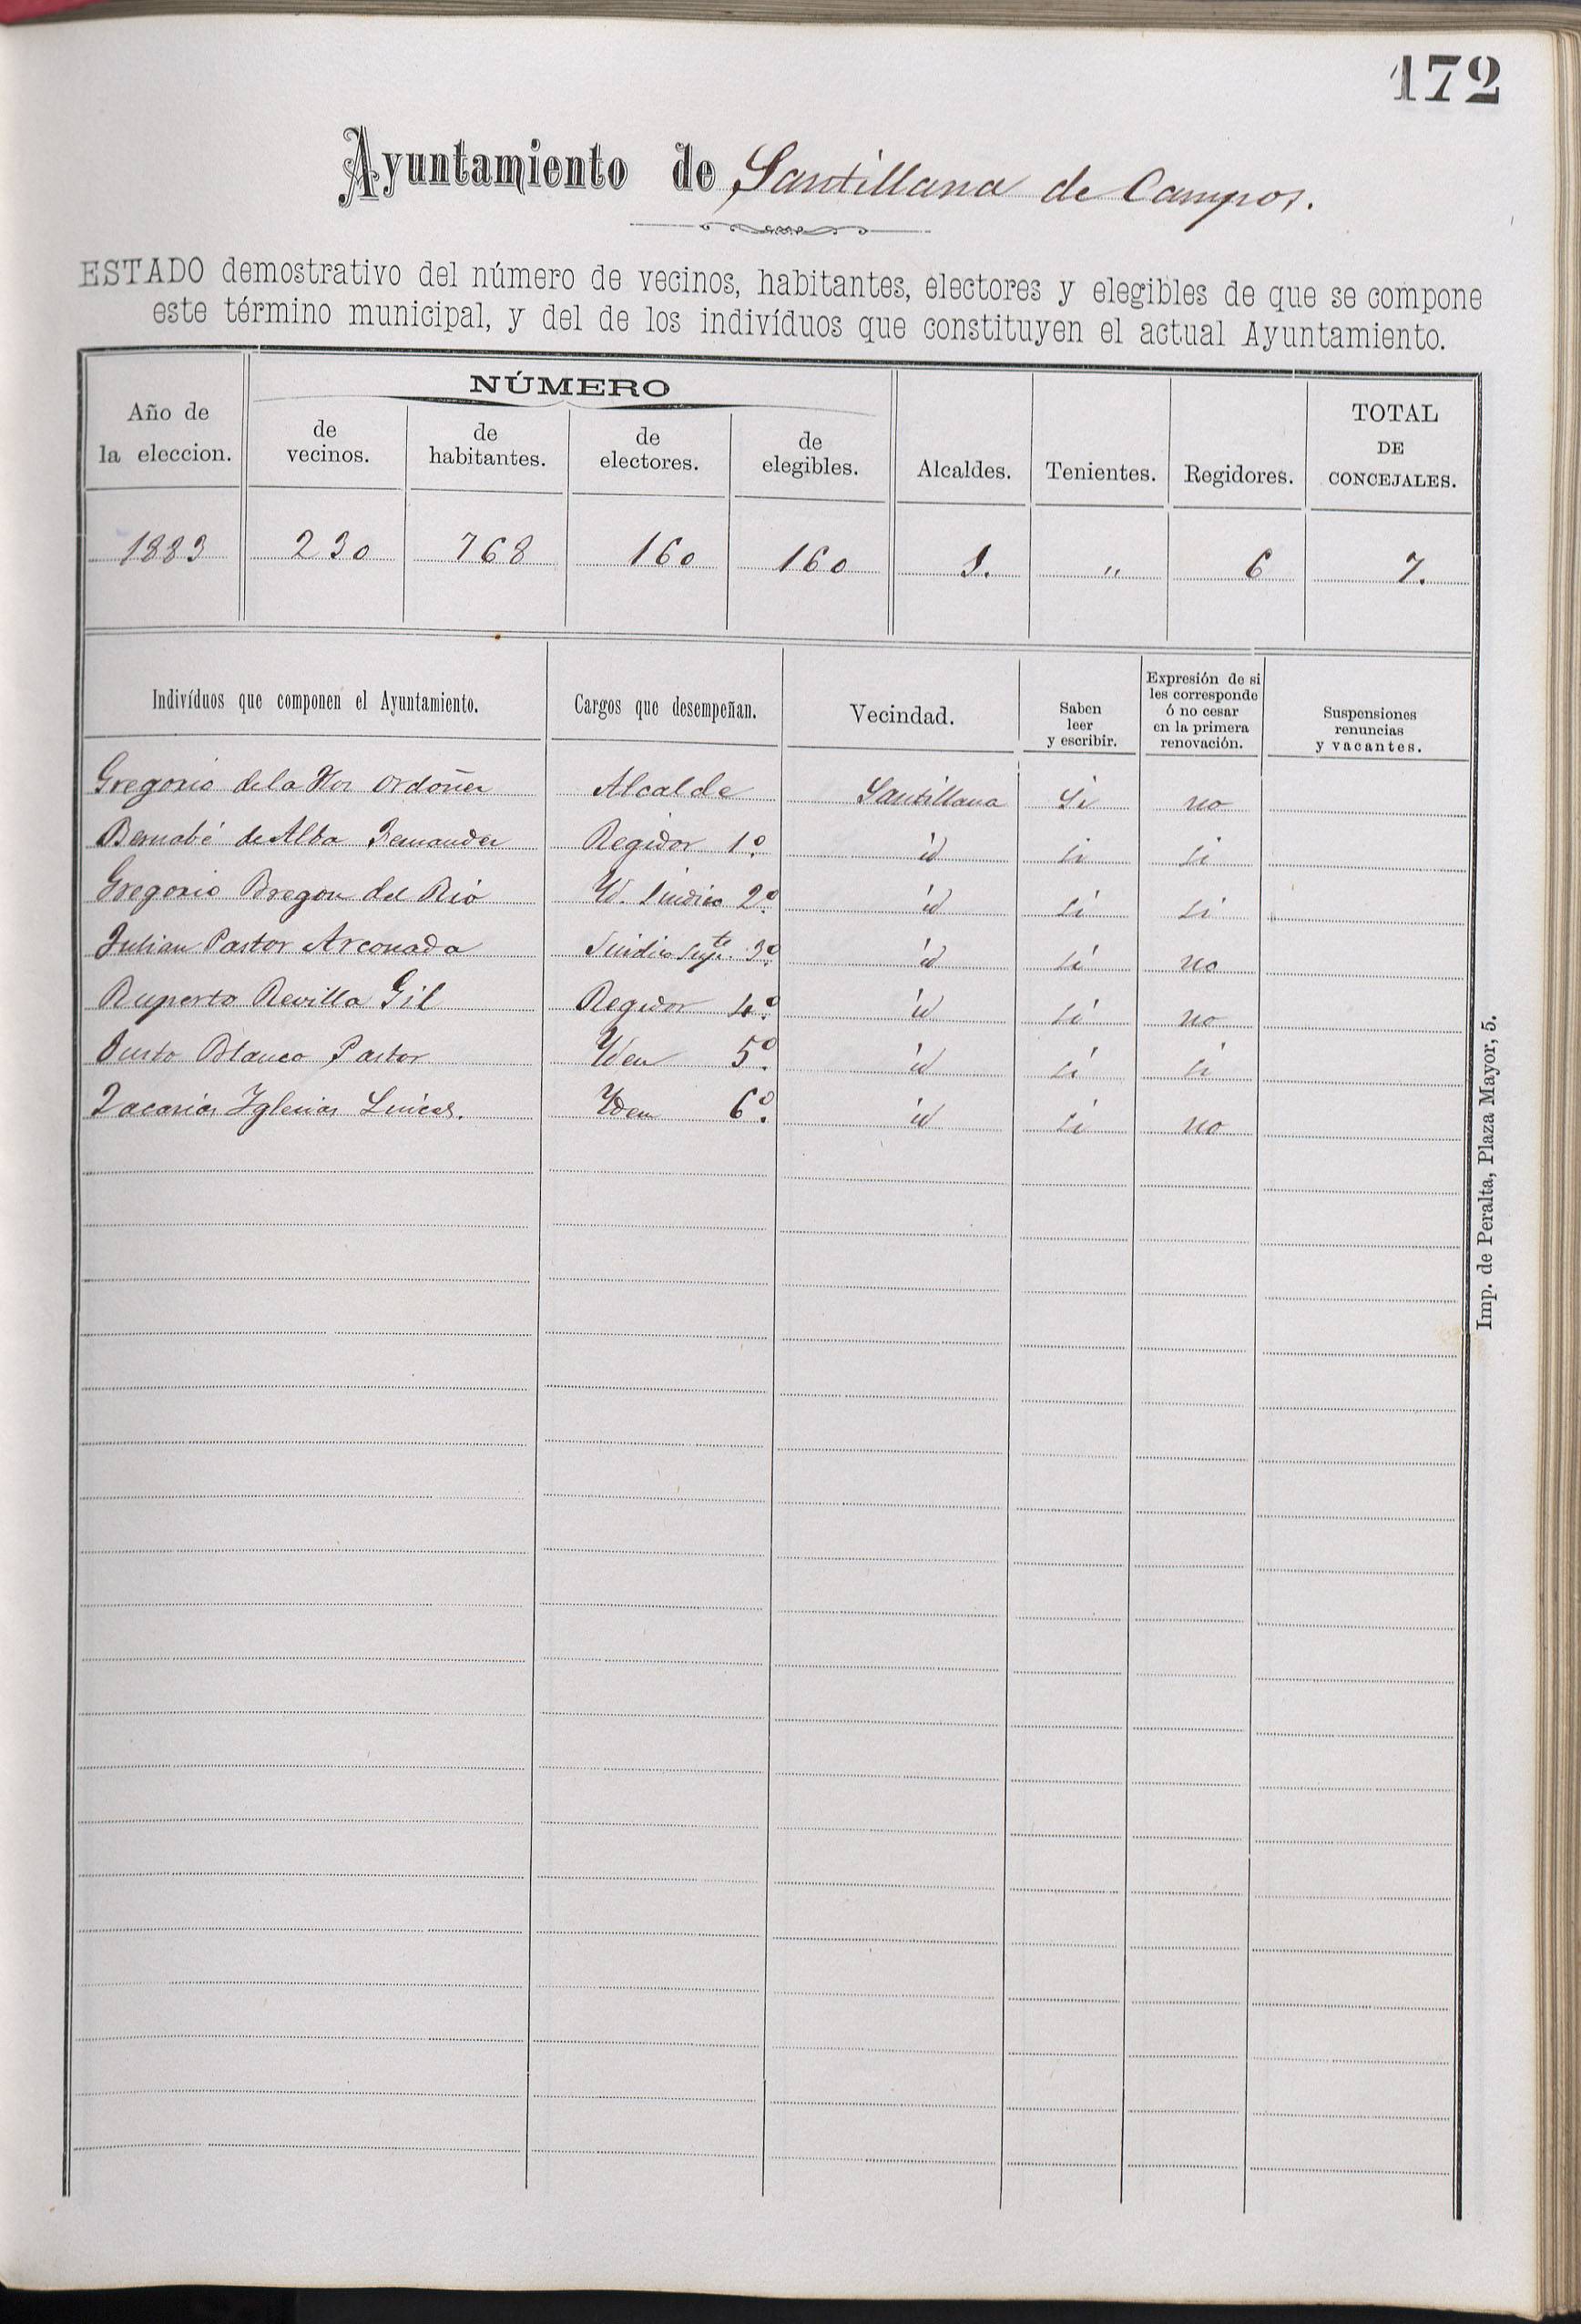 172
Ayuntamiento de Santillana de Campos.
ESTADO demostrativo del número de vecinos, habitantes, electores y elegibles de que se compone
este término municipal, y del de los indivíduos que constituyen el actual Ayuntamiento.
Año de la eleccion. NÚMERO de vecinos. de habitantes. de electores. de elegibles. Alcaldes. Tenientes. Regidores. TOTAL DE CONCEJALES.
1883 230 768 160 160 1. " 6 7.
Indivíduos que componen el Ayuntamiento. Cargos que desempeñan. Vecindad. Saben leer y escribir. Expresión de si les corresponde ó no cesar en la primera renovación. Suspensiones renuncias y vacantes.
Gregorio de la Ordoñez Alcalde Santillana Si no
Bernabé de Alba Fernandez Regidor 1º id si si
Gregorio Bregon del Rio Yd. Sindico 2º id si si
Julian Pastor Arconada Sindico Supte. 3º id si no
Ruperto Revilla Gil Regidor 4º id si no
Justo Blanco Pastor Yden 5º id si si
Zacarias Yglesias Yden 6º id si no
Imp. de Peralta, Plaza Mayor, 5.